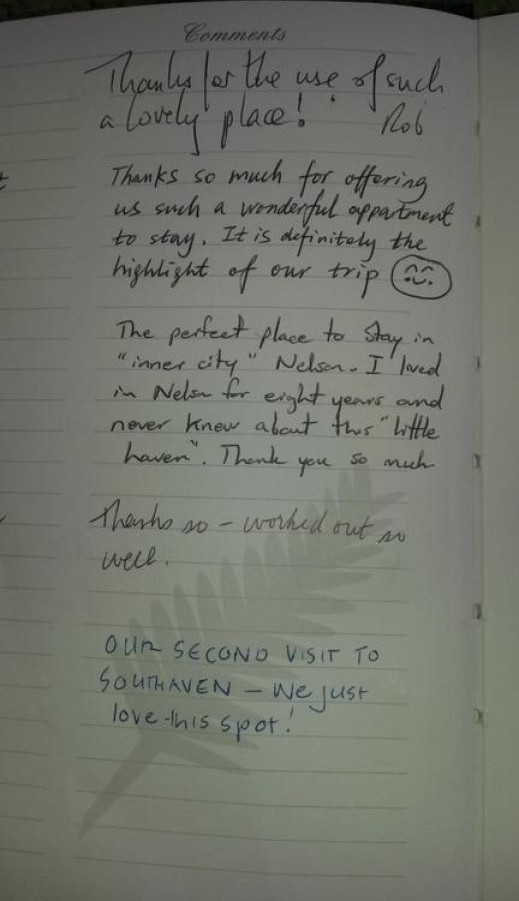 Comments
Thanks for the use of such
a lovely place! Rob
Thanks so much for offering
us such a wonderful appartment
to stay. It is definitely the
highlight of our trip
The perfect place to stay in
"inner city" Nelson. I lived
in Nelson for eight years and
never knew about this "little
haven". Thank you so much
Thanks so - worked out so
well.
OUR SECOND VISIT TO
SOUTHAVEN - We just
love this spot!